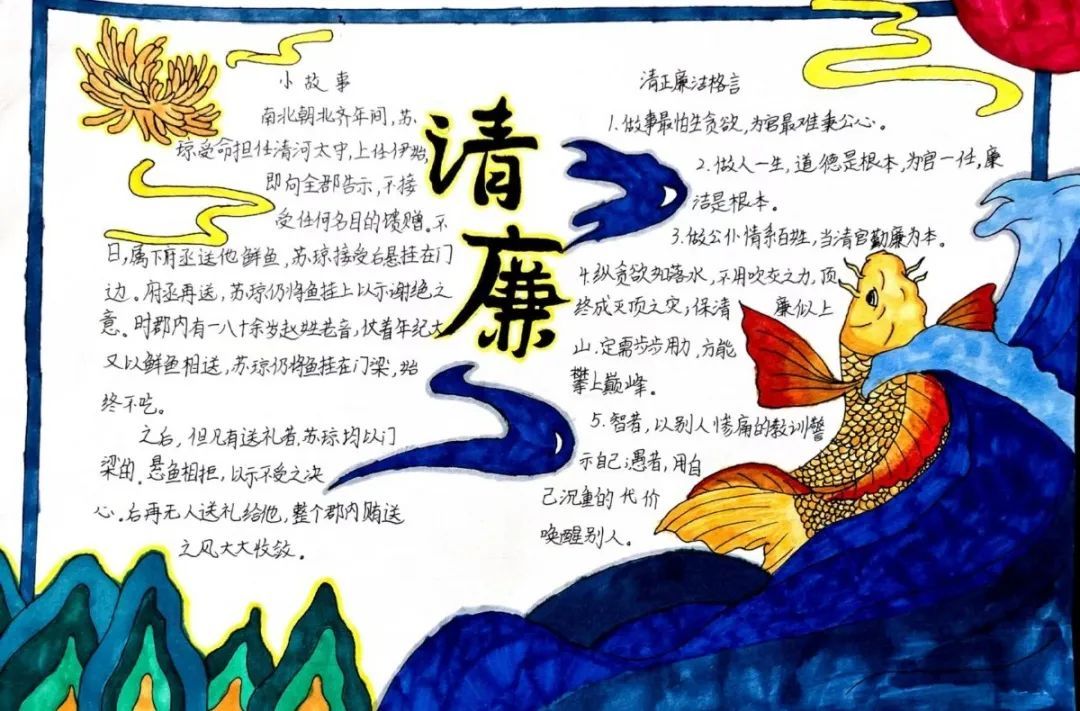 小故事
南北朝北齐年间,苏
琼受命担任清河太守,上任伊始,
即向全郡告示,不接
受任何名目的馈赠。不
日,属下府丞送他鲜鱼,苏琼接受后悬挂在门
边。府丞再送,苏琼仍将鱼挂上以示谢绝之
意。时郡内有一八十余岁赵姓老音,仗着年纪大
又以鲜鱼相送,苏琼仍将鱼挂在门梁,始
终不吃。
之后,但凡有送礼者,苏琼均以门
梁的。悬鱼相拒,以示不受之决
心。后再无人送礼给他,整个郡内贿送
之风大大收敛。
清廉
清正廉洁格言
1.做事最怕生贪欲,为官最难秉公心。
2.做人一生,道德是根本,为官一任,廉
洁是根本。
3.做公仆情系百姓,当清官勤廉为本。
4.纵贪欲如落水,不用吹灰之力,顶
终成灭顶之灾,保清廉似上
山.定需步步用力,方能
攀上巅峰。
5.智者,以别人惨痛的教训警
示自己愚者,用自
己沉重的代价
唤醒别人。